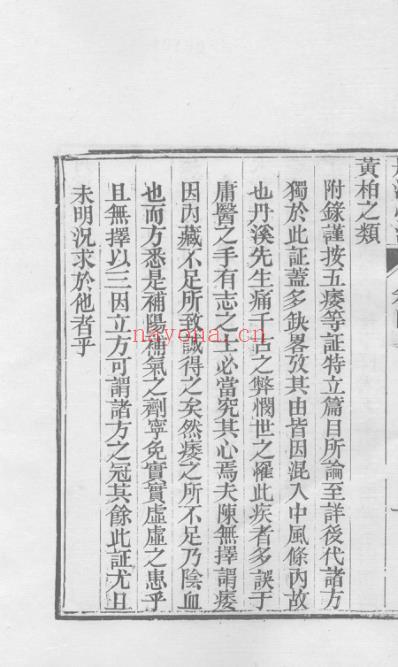 黄柏之類
附錄謹按五痿等証特立篇目所論至詳後代諸方
獨於此証蓋多缺畧攷其由皆因混入中風條內故
也丹溪先生痛千古之弊憫世之罹此疾者多誤于
庸醫之手有志之士必當究其心焉夫陳無擇謂痿
因內藏不足所致誠得之矣然痿之所不足乃陰血
也而方悉是補陽補氣之劑寧免實實虛虛之患乎
且無擇以三因立方可謂諸方之冠其餘此証尤且
未明況求於他者乎
nayona.cn